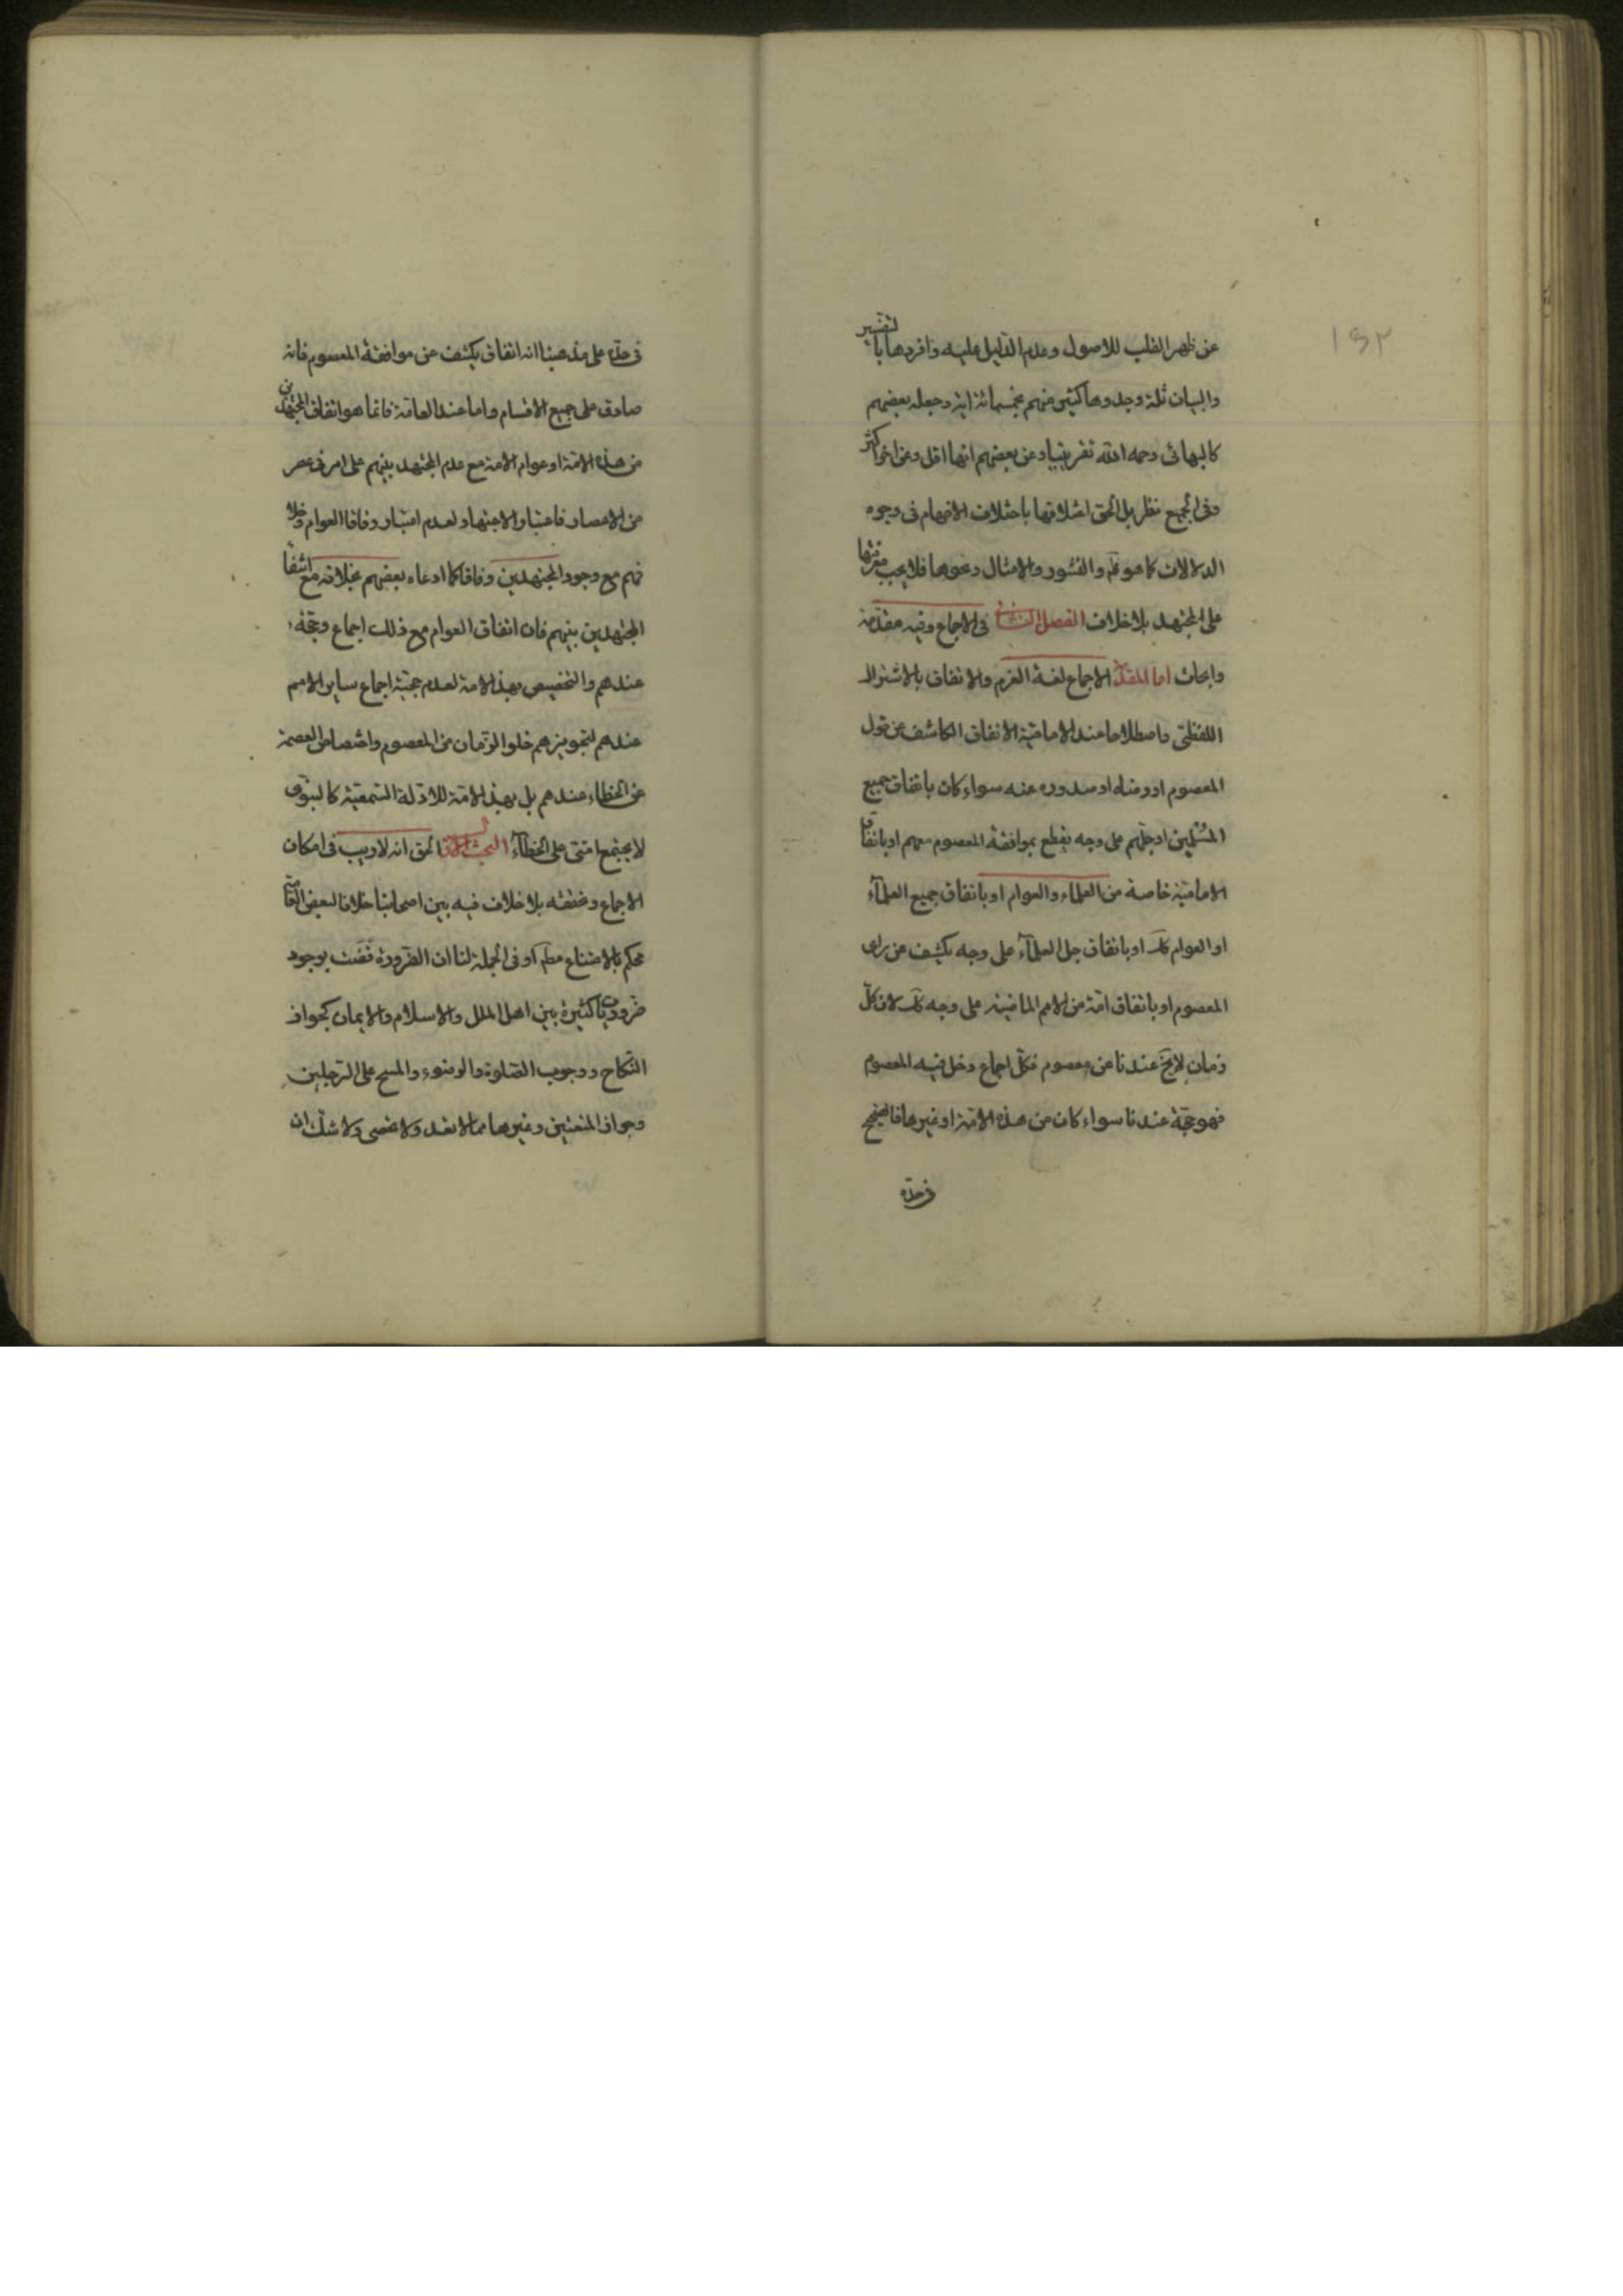 ١٥٢
عن ظهر القلب للاصول وعدم الدليل عليه وافردها بالتفسير
والبيان ثلة وحدوها كثير منهم بخمسمائة اية وجعله بعضهم
كالبهائى رحمه الله تقريبيا وعن بعضهم انها اقل وعن اخر اكثر
وفى الجميع نظر بل الحق اختلافها باختلاف الافهام فى وجوه
الدلالات كما هو ثم والقشور والامثال ونحوها فلا يجب معرفتها
على المجتهد بلا خلاف الفصل الثانى فى الاجماع وفيه مقدمة
وابحاث اما المقدمة الاجماع لغة العزم والاتفاق بالاشتراك
اللفظى واصطلاحا عند الامامية الاتفاق الكاشف عن قول
المعصوم او رضاه او صدوره عنه سواء كان باتفاق جميع
المسلمين او جلهم على وجه يقطع بموافقة المعصوم معهم او باتفاق
الامامية خاصة من العلماء والعوام او باتفاق جميع العلمآء
او العوام كك او باتفاق جل العلمآء على وجه يكشف عن راى
المعصوم او باتفاق امة من الامم الماضية على وجه كك لان كل
زمان لا يخ عندنا عن معصوم فكل اجماع دخل فيه المعصوم
فهو حجة عندنا سواء كان من هذه الامة او غيرها فالصحيح
فى حده
فى حده على مذهبنا انه اتفاق يكشف عن موافقة المعصوم فانه
صادق على جميع الاقسام واما عند العامة فانما هو اتفاق المجتهدين
من هذه الامة او عوام الامة مع عدم المجتهد بينهم على امر فى عصر
من الاعصار فاعتبار الاجتهاد لعدم اعتبار وفاق العوام وخلا
فهم مع وجود المجتهدين وفاقا كما ادعاه بعضهم بخلافه مع انتفآ
المجتهدين بينهم فان اتفاق العوام مع ذلك اجماع وحجة
عندهم والتخصيص بهذه الامة لعدم حجية اجماع ساير الامم
عندهم لتجويزهم خلو الزمان من المعصوم واختصاص العصمة
عن الخطاء عندهم بل بهذه الامة للادلة السمعية كالنبوى
لا يجتمع امتى على الخطآء البحث الاول الحق انه لا ريب فى امكان
الاجماع وتحققه بلا خلاف فيه بين اصحابنا خلافا لبعض العامة
محكم بالامتناع مطلقا او فى الجملة لنا ان الضرورة قضت بوجود
ضروريات كثيرة بين اهل الملل والاسلام والايمان كجواز
النكاح ووجوب الصلوة والوضوء والمسح على الرجلين
وجواز المتعتين وغيرها مما لا تعد ولا تحصى ولا شك ان